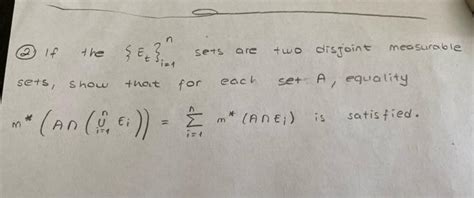 ② If the {E_t}ⁿ_{i=1} sets are two disjoint measurable
sets, show that for each set A, equality
m* (A∩ (∪ⁿ_{i=1} E_i)) = Σⁿ_{i=1} m* (A∩E_i) is satisfied.